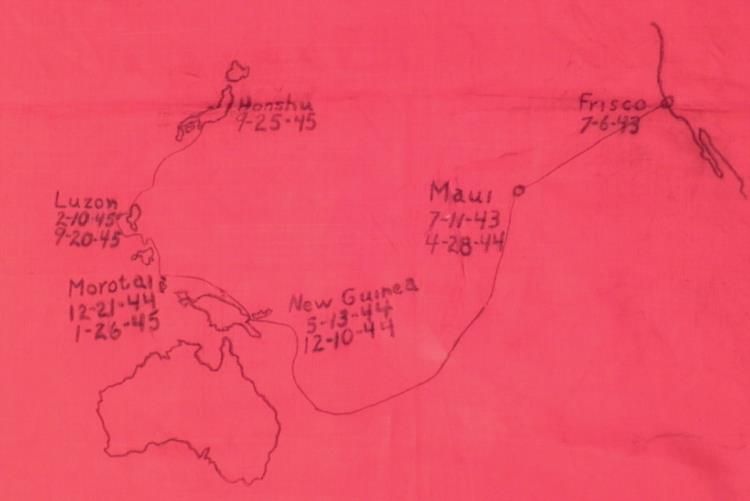 Honshu
9-25-45
Frisco
7-6-43
Luzon
2-10-45
9-20-45
Maui
7-11-43
4-28-44
Morotai
12-21-44
1-26-45
New Guinea
5-13-44
12-10-44